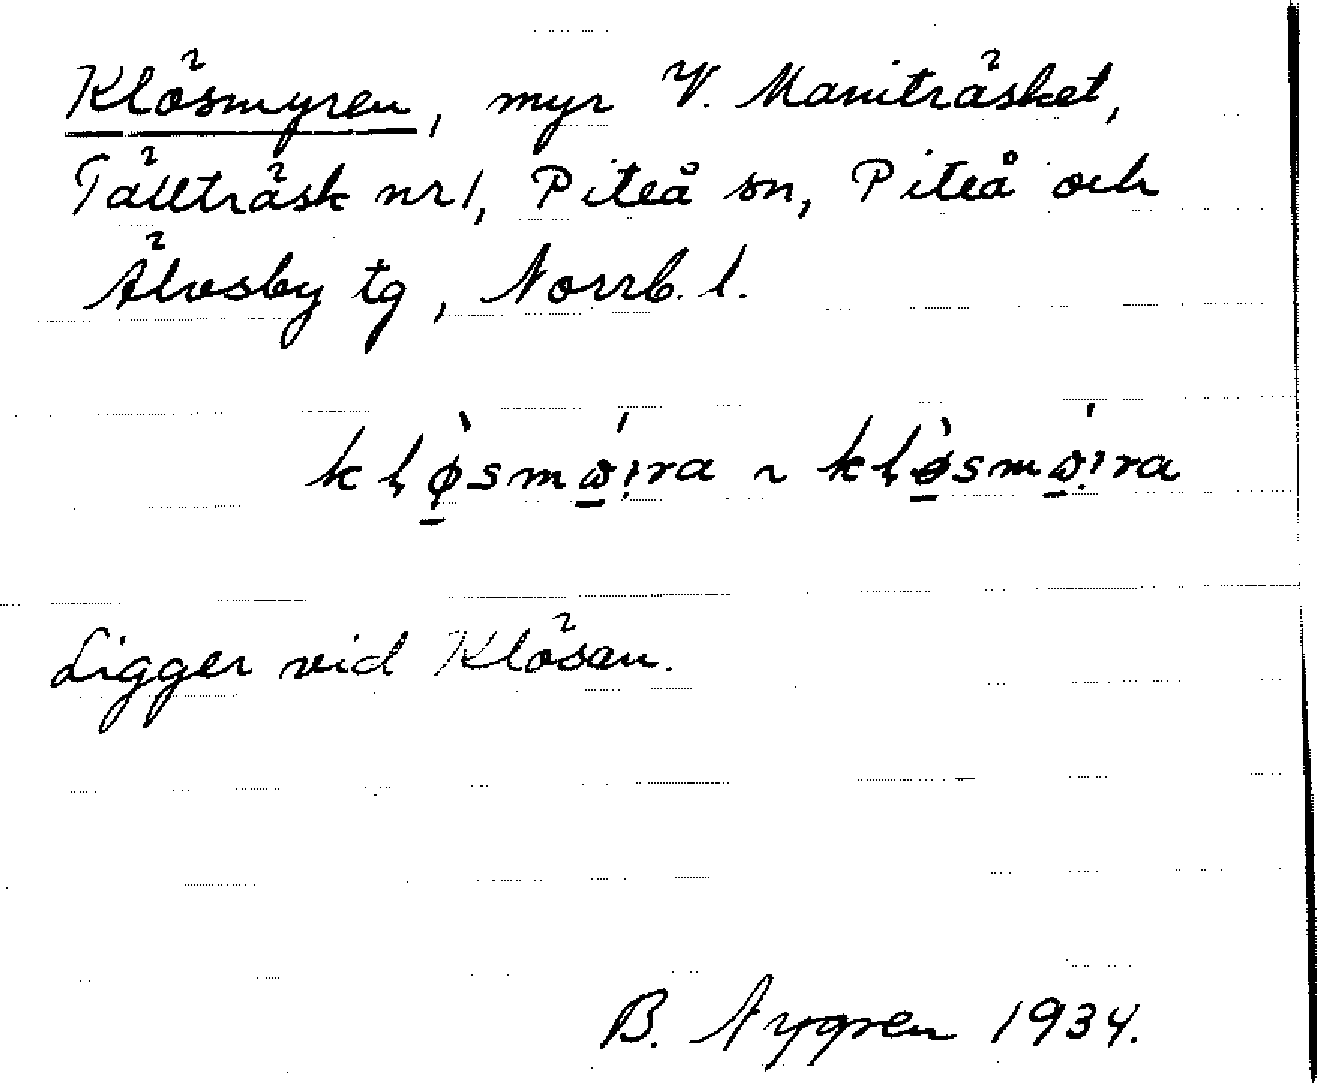 Klösmyren, myr V. Maniträsket,
Tällträsk nr 1, Piteå sn, Piteå och
Älvsby tg, Norrb. l.
kḷø̀smǿ̱i̤ra ~ kḷø̱̀smǿ̱i̤ra
Ligger vid Klösan.
B. Nygren 1934.